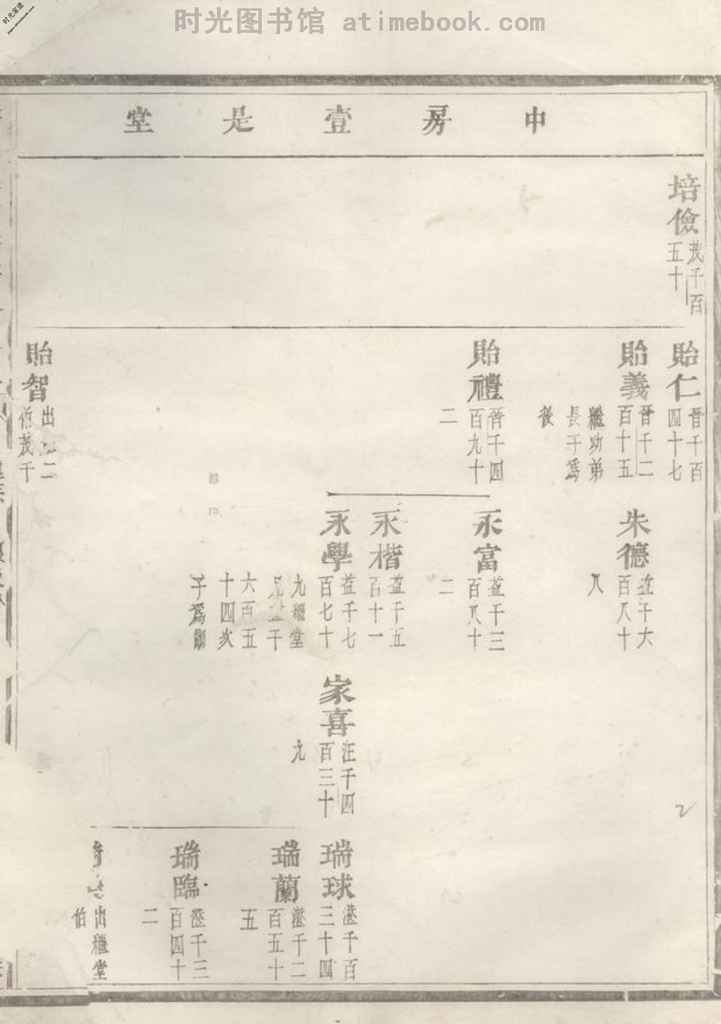 时光图书馆 atimebook.com
中房壹是堂
培儉
茂千百
五十
貽仁
晉千百
四十七
貽義
晉千二
百十五
繼功弟
長子爲
後
貽禮
晉千四
百九十
二
貽智
出
朱德
益千六
百八十
八
永富
益千三
百八十
二
永楷
益千五
百十一
永學
益千七
百七十
九繼堂
六百五
十四次
子爲嗣
家喜
汪千四
百三十
九
瑞球
滋千百
三十四
瑞蘭
滋千二
百五十
五
瑞臨
滋千三
百四十
二
出繼堂
伯